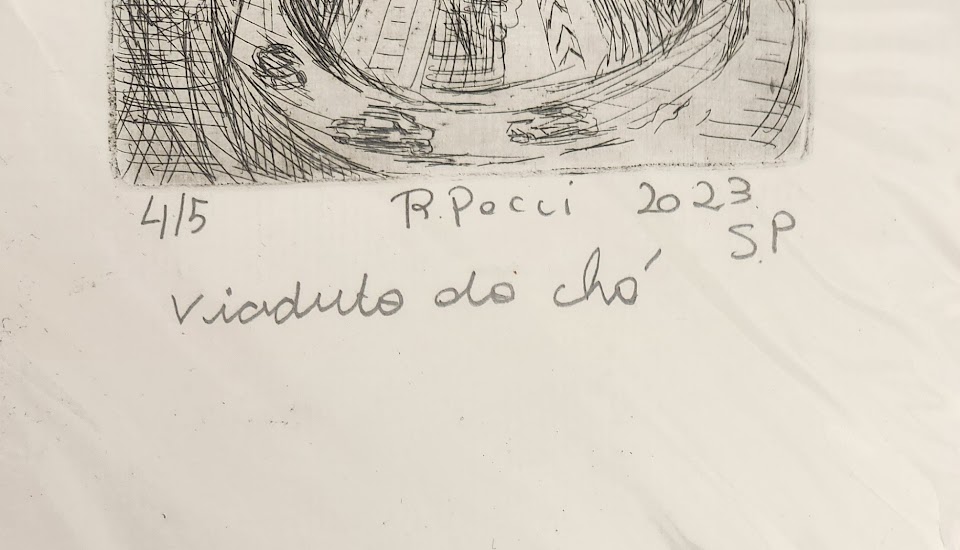 4/5 R.Pacci 2023.
S.P
Viaduto do chá